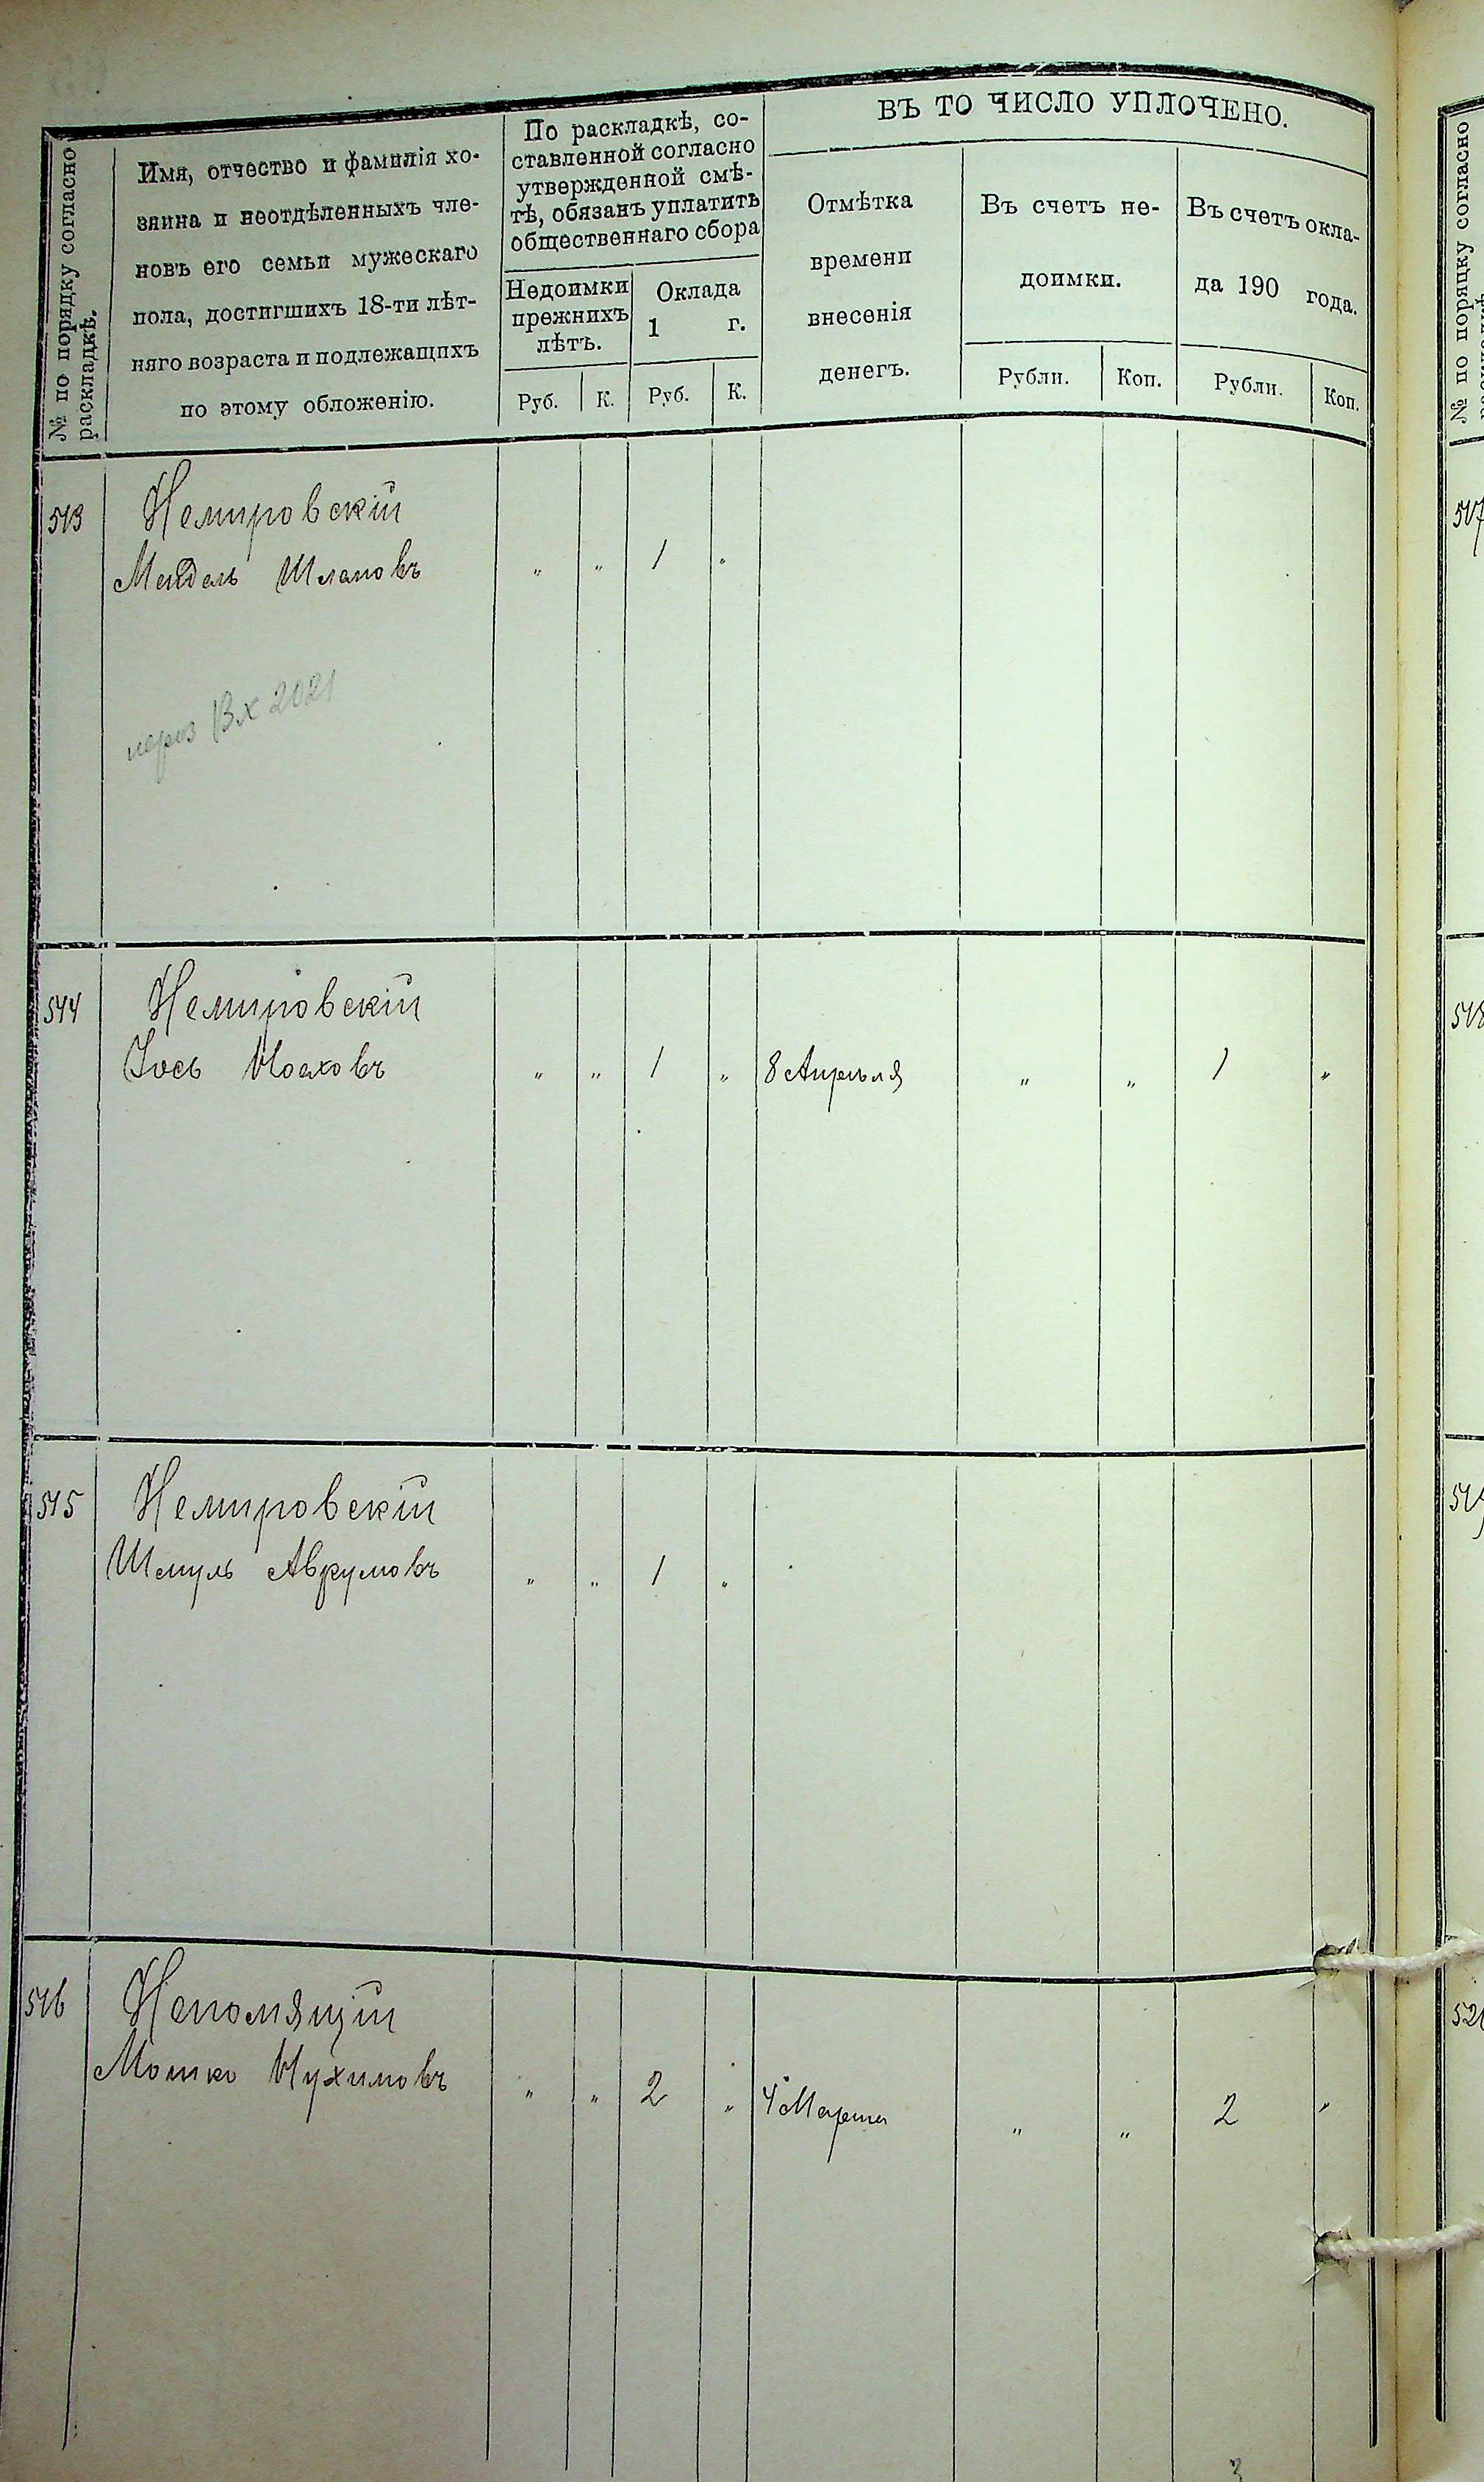 № по порядку согласно
раскладкѣ.
Имя, отчество и фамилія хо-
зяина и неотдѣленныхъ чле-
новъ его семьи мужескаго
пола, достигшихъ 18-ти лѣт-
няго возраста и подлежащихъ
по этому обложенію.
По раскладкѣ, со-
ставленной согласно
утвержденной смѣ-
тѣ, обязанъ уплатить
общественнаго сбора
Недоимки
прежнихъ
лѣтъ.
Оклада
1 г.
Руб. К. Руб. К.
ВЪ ТО ЧИСЛО УПЛОЧЕНО.
Отмѣтка
времени
внесенія
денегъ.
Въ счетъ не-
доимки.
Въ счетъ окла-
да 190 года.
Рубли. Коп. Рубли. Коп.
513 Немировскій
Мендель " " 1 "
Вх 2021
514 Немировскій
Іось " " 1 " 8 Апрѣля " " 1 "
515 Немировскій
Шмуль Аврумовъ " " 1 "
516 Непомящій
Мошко Нухимовъ " " 2 " 4 Марта " " 2 "
№ по порядку согласно